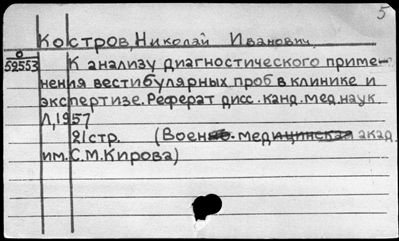 5
Костров, Николай Иванович.
О
52553 К анализу диагностического приме-
нения вестибулярных проб в клинике и
экспертизе. Реферат дисс. канд. мед. наук.
Л, 1957
21 стр. (Воен. медицинская акад.
им. С.М. Кирова)